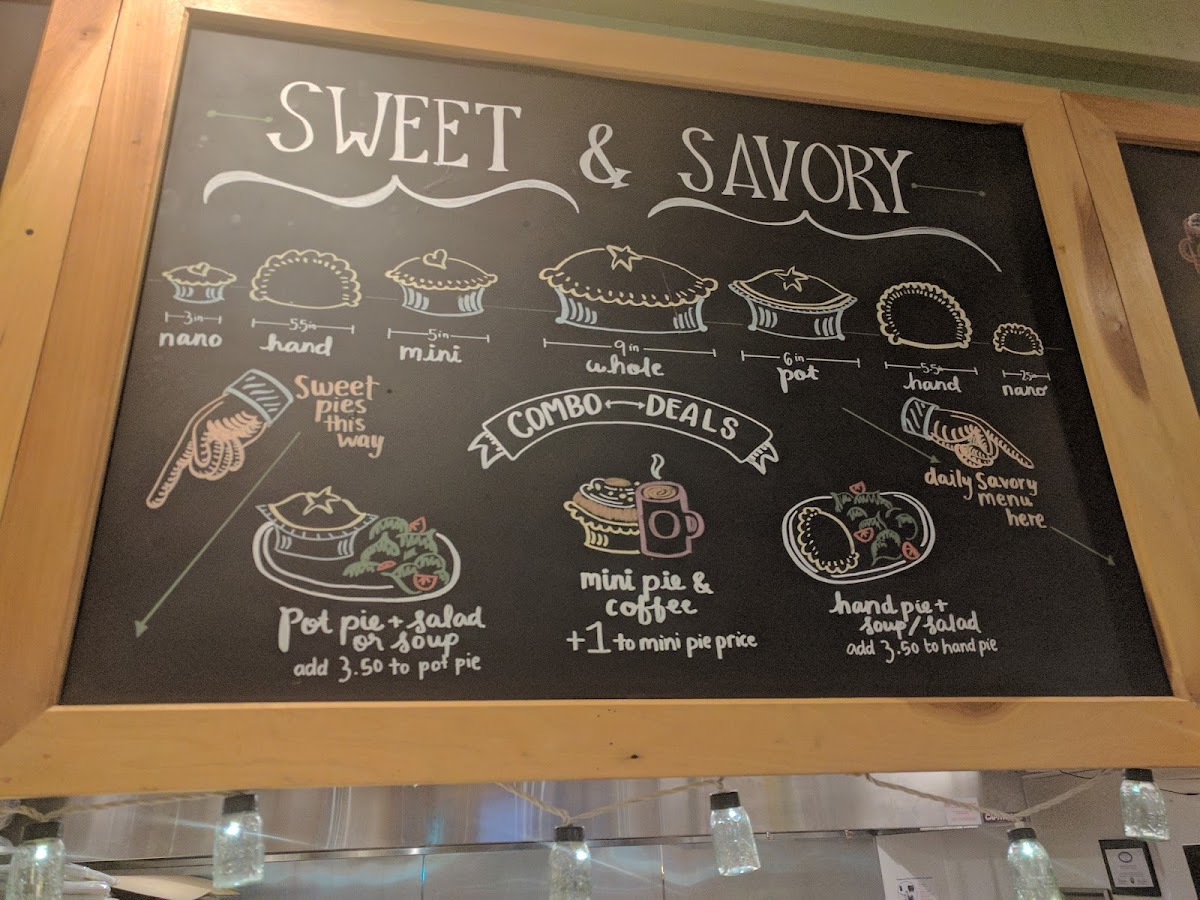 SWEET & SAVORY
3in
nano
5.5in
hand
5in
mini
9in
whole
6in
pot
5.5in
hand
2.5in
nano
Sweet
pies
this
way
COMBO DEALS
daily Savory
menu
here
Pot pie + salad
or soup
add 3.50 to pot pie
mini pie &
coffee
+1 to mini pie price
hand pie +
soup/salad
add 3.50 to hand pie